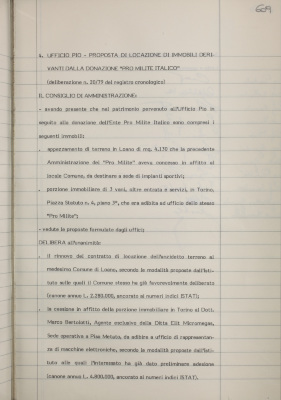 609
4. UFFICIO PIO - PROPOSTA DI LOCAZIONE DI IMMOBILI DERI-
VANTI DALLA DONAZIONE "PRO MILITE ITALICO"
(deliberazione n. 20/79 del registro cronologico)
IL CONSIGLIO DI AMMINISTRAZIONE:
- avendo presente che nel patrimonio pervenuto all'Ufficio Pio in
seguito alla donazione dell'Ente Pro Milite Italico sono compresi i
seguenti immobili:
. appezzamento di terreno in Loano di mq. 4.130 che la precedente
Amministrazione del "Pro Milite" aveva concesso in affitto al
locale Comune, da destinare a sede di impianti sportivi;
. porzione immobiliare di 7 vani, oltre entrata e servizi, in Torino,
Piazza Statuto n. 4, piano 3°, che era adibita ad ufficio dello stesso
"Pro Milite";
- vedute le proposte formulate dagli uffici
DELIBERA all'unanimità:
. il rinnovo del contratto di locazione dell'accidentto terreno al
medesimo Comune di Loano, secondo le modalità proposte dall'Isti-
tuto sulle quali il Comune stesso ha già favorevolmente deliberato
(canone annuo L. 2.280.000, ancorato ai numeri indici ISTAT);
. la cessione in affitto della porzione immobiliare in Torino al Dott.
Marco Bertolotti, Agente esclusivo della Ditta
sede operativa a da adibire a ufficio di rappresentan-
ze di macchine elettroniche, secondo le modalità proposte dall'Isti-
tuto alle quali l'interessato ha già dato preliminare adesione
(canone annuo L. 4.800.000, ancorato ai numeri indici ISTAT).